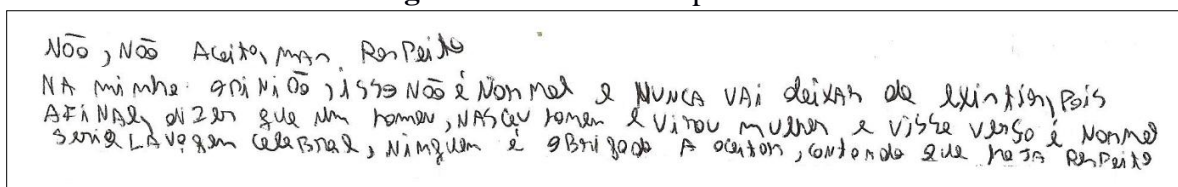 Não, Não Aceito, mas Respeito
NA minha opinião, isso Não é Normal e NUNCA VAi deixar de existir, pois
AFiNAL, dizer que um homem, NASceu homem e virou mulher e visse verso é Normal
seria LAVagem celebral, Ninguem é obrigado A aceitar, contando que haja Respeito